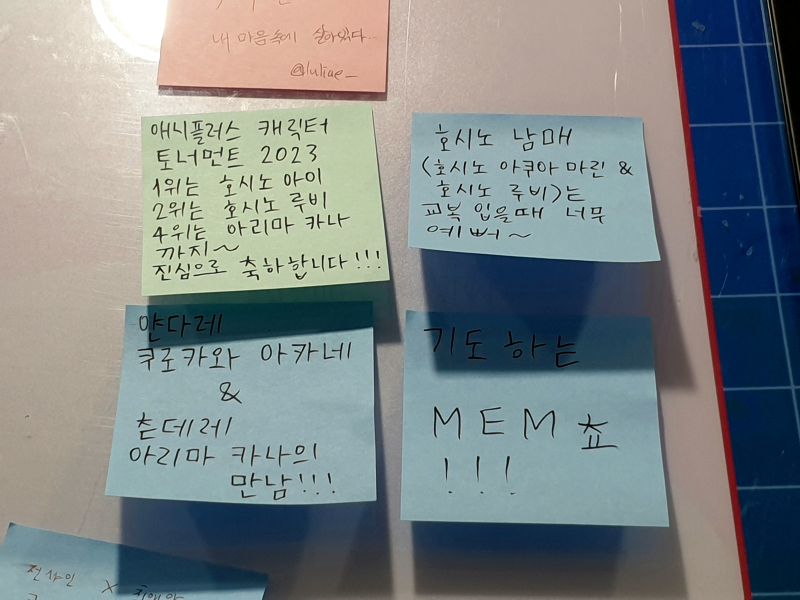 내 마음속에 살아있다...
@luliae_
애니플러스 캐릭터
토너먼트 2023
1위는 호시노 아이
2위는 호시노 루비
4위는 아리마 카나
까지~
진심으로 축하합니다!!!
호시노 남매
(호시노 아쿠아 마린 &
호시노 루비)는
교복 입을때 너무
예뻐~
얀다레
쿠로카와 아카네
&
츤데레
아리마 카나의
만남!!!
기도하는
MEM쵸
!!!
전사인 X